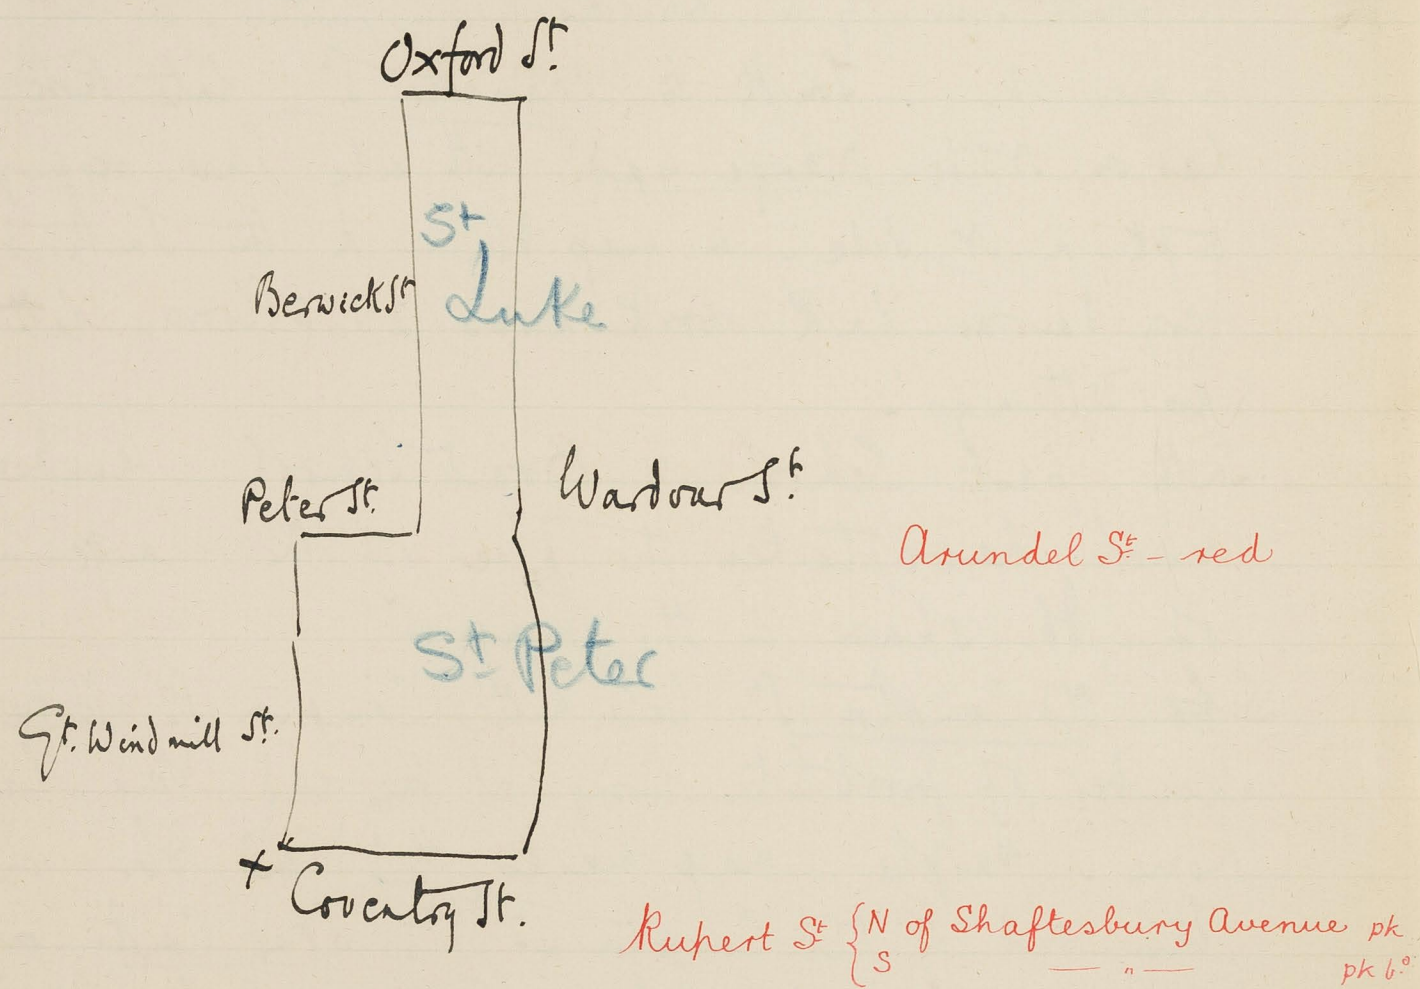 Oxford St.
St
Luke
Berwick St
Peter St.
Wardour St.
Arundel St - red
St Peter
Gt. Windmill St.
x
Coventry St.
Rupert St { N of Shaftesbury Avenue pk
S — " — pk b.o